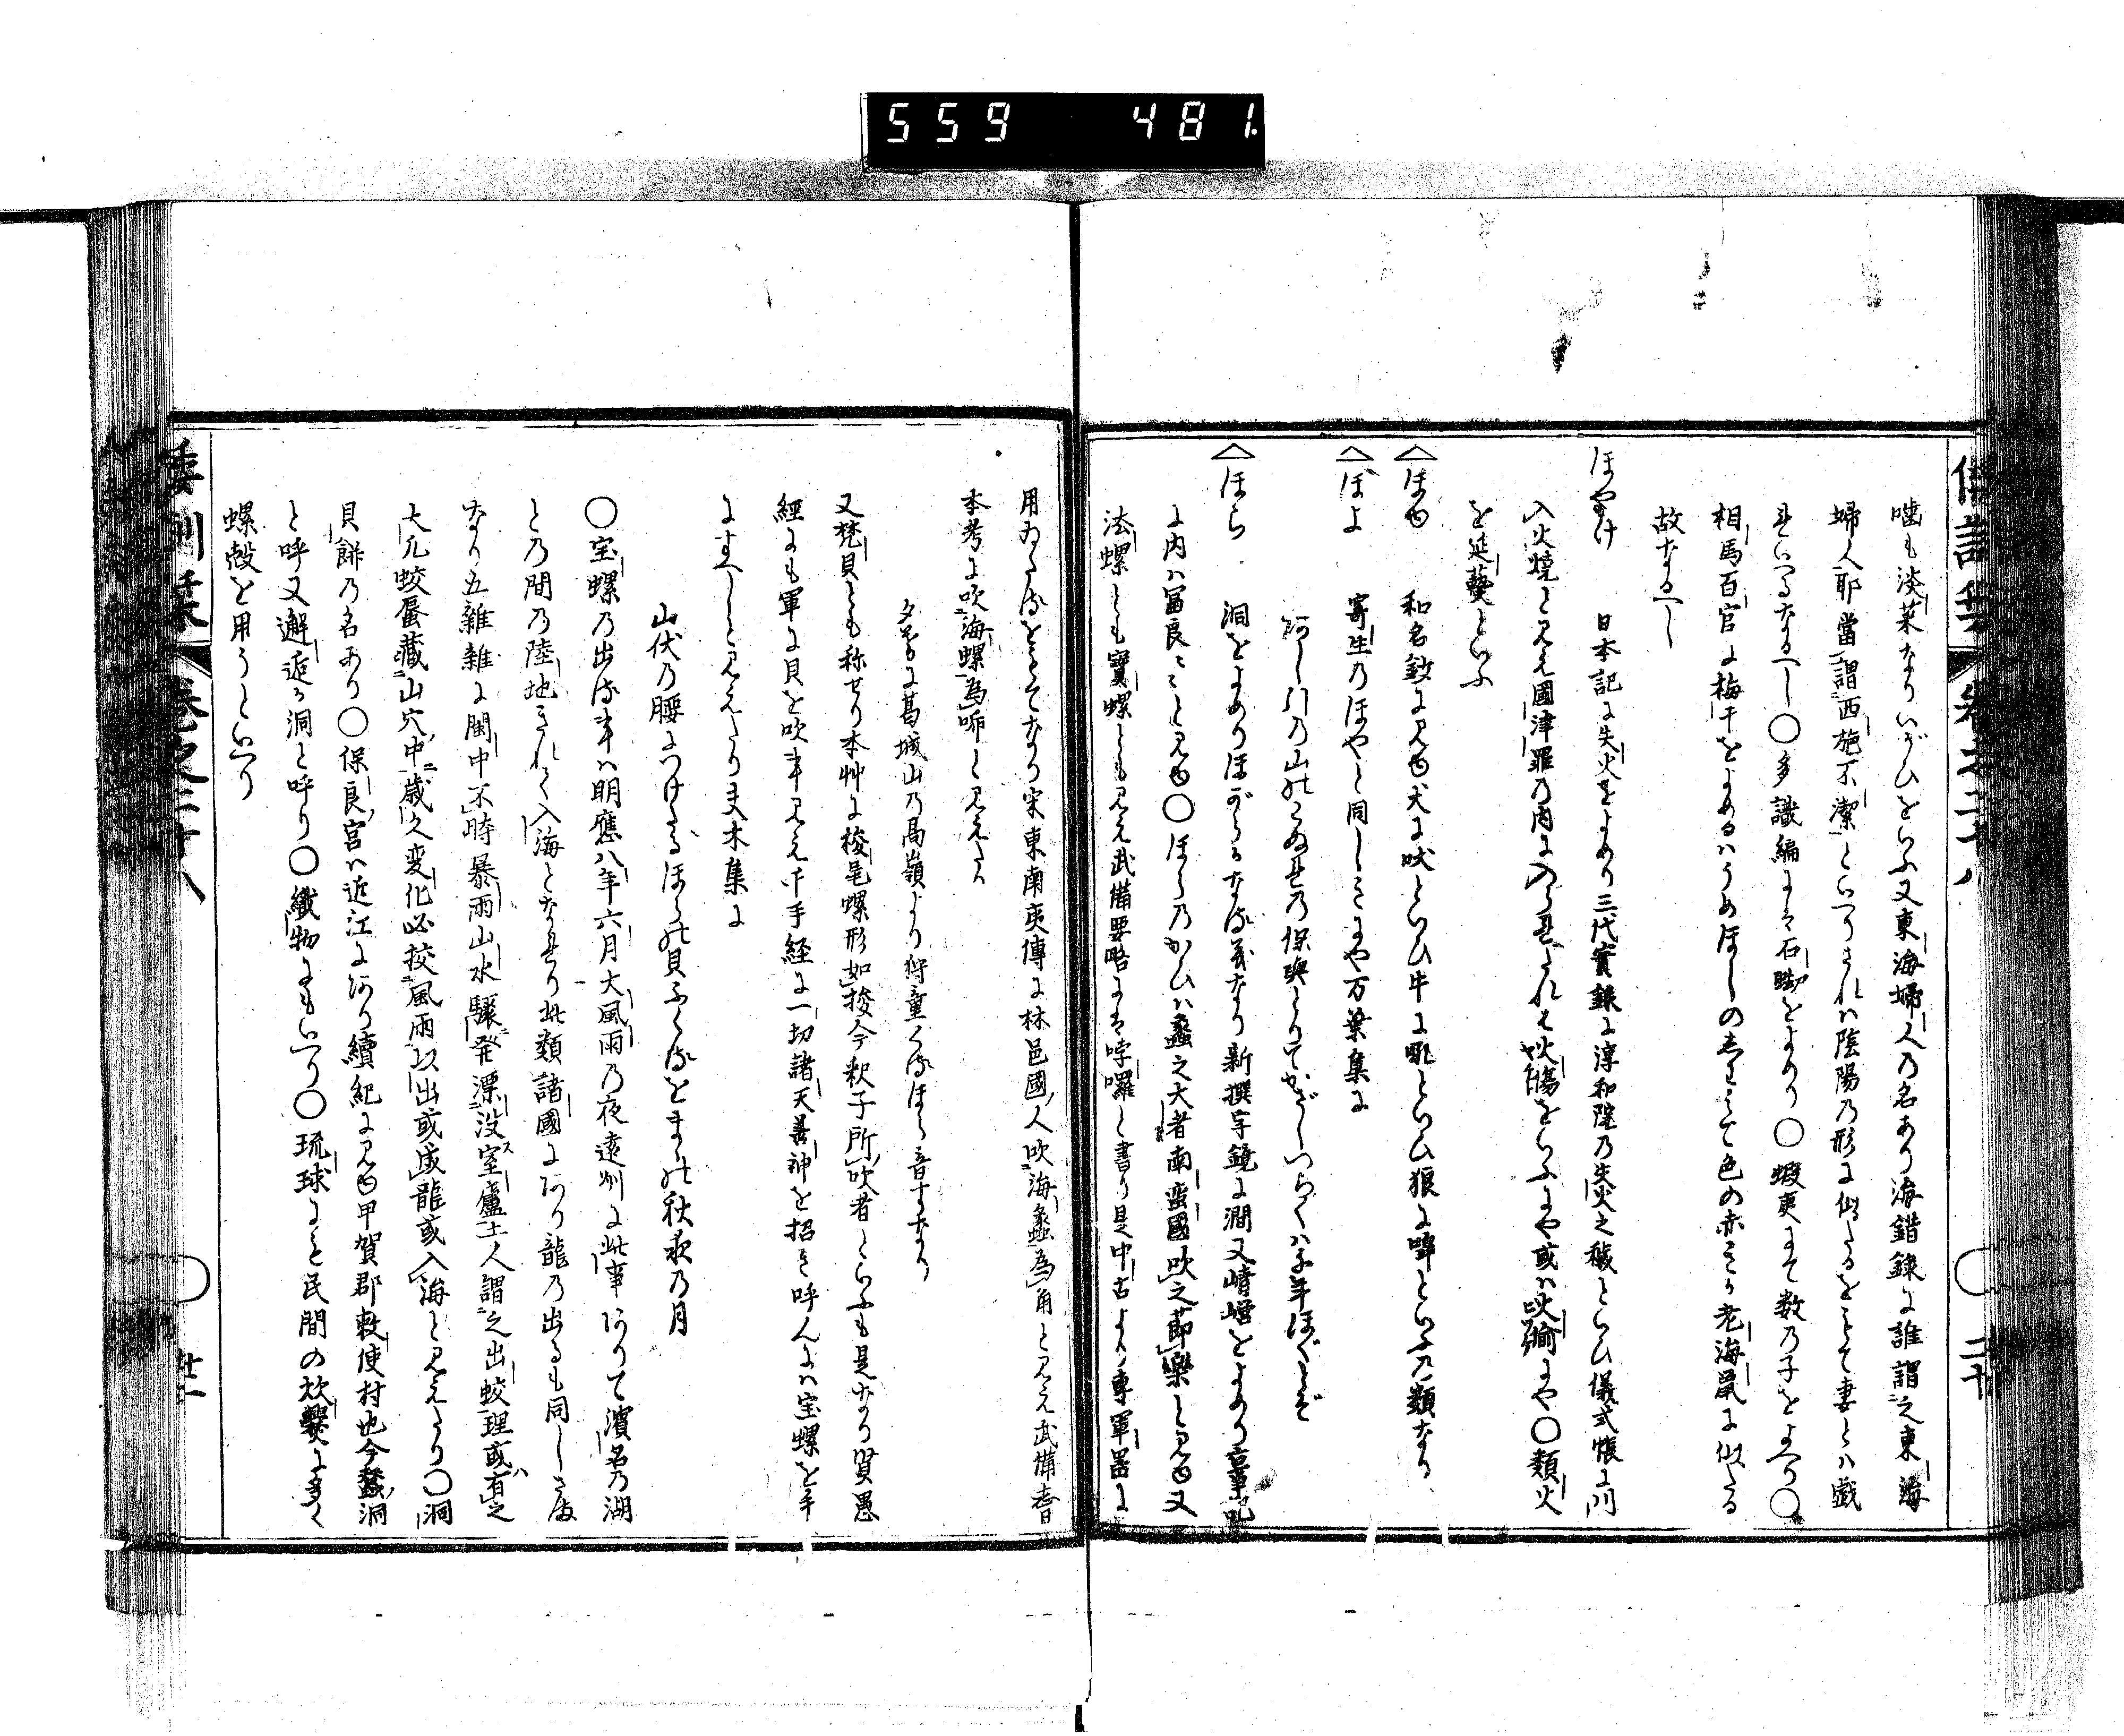 559 481
噬も淡菜なりいがひをいふ又東海婦人の名あり海錯録に誰謂之東海
婦人耶當謂西施不潔といへりされハ陰陽の形に似たるをもて妻とハ戯
れいへるなるへし〇多識編にそ石蜐をよめり〇蝦夷にて数の子をよへり〇
相馬百官に梅干をよめるハうめほしの
色の赤きか老海鼠に似たる
故なるへし
ほやけ 日本記に失火をよめり三代實録に淳和院の失火之穢といひ儀式帳に川
入火燒と見え國津罪の内に入られたれは火傷をいふにや或ハ
にや〇類火
を延爇といふ
ほゆ 和名鈔に見ゆ犬に吠といひ牛に吼といひ狼に嘷といふの類なり
ほよ 寄生のほやと同しきにや万葉集に
あし引の山のこぬれの保與とりてかざしつらくハ千年ほぐとぞ
ほら 洞をよめりほがらかなる義なり新撰字鏡に澗又崝嶒をよめり古事記
に内ハ冨良ミミと見ゆ〇ほらのかひハ蠡之大者南蛮國吹之節樂と見ゆ又
法螺とも寶螺とも見え武備要略にそ哱囉と書り是中古より専軍器に
用ゐたるをもてなり宋東南夷傳に林邑國人吹海蠡為角と見え武備志日
本考に吹海螺為號と見えたり
夕されは葛城山の高嶺より狩童くるほら音すなり
又梵貝とも称せり本艸に梭尾螺形如梭今釈子所吹者といふも是なり賢愚
經にも軍に貝を吹事見え千手経に一切諸天善神を招き呼んにハ宝螺を手
にすへしと見えたり夫木集に
山伏の腰につけたるほらの貝ふくるをまゝの秋夜の月
〇宝螺の出る事ハ明應八年六月大風雨の夜遠州に此事ありて濱名の湖
との間の陸地きれて入海となれり此類諸國にあり龍の出るも同しさま
なり五雜雜に閩中不時暴雨山水驟発漂没室廬土人謂之出蛟理或有之
大凡蛟蜃藏山穴中歳久変化必挍風雨以出或成龍或入海と見えたり〇洞
貝餅の名あり〇保良宮ハ近江にあり續紀に見ゆ甲賀郡敕使村也今蠶洞
と呼又邂逅か洞と呼り〇纎物にもいへり〇琉球にそ民間の炊爨に多く
螺殻を用うといへり